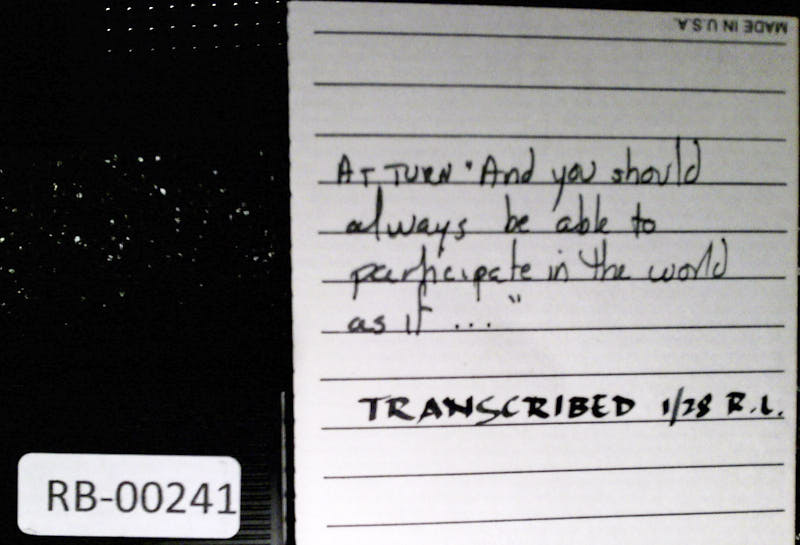 MADE IN U.S.A.
AT TURN "And you should
always be able to
participate in the world
as if ..."
TRANSCRIBED 1/28 R.L.
RB-00241